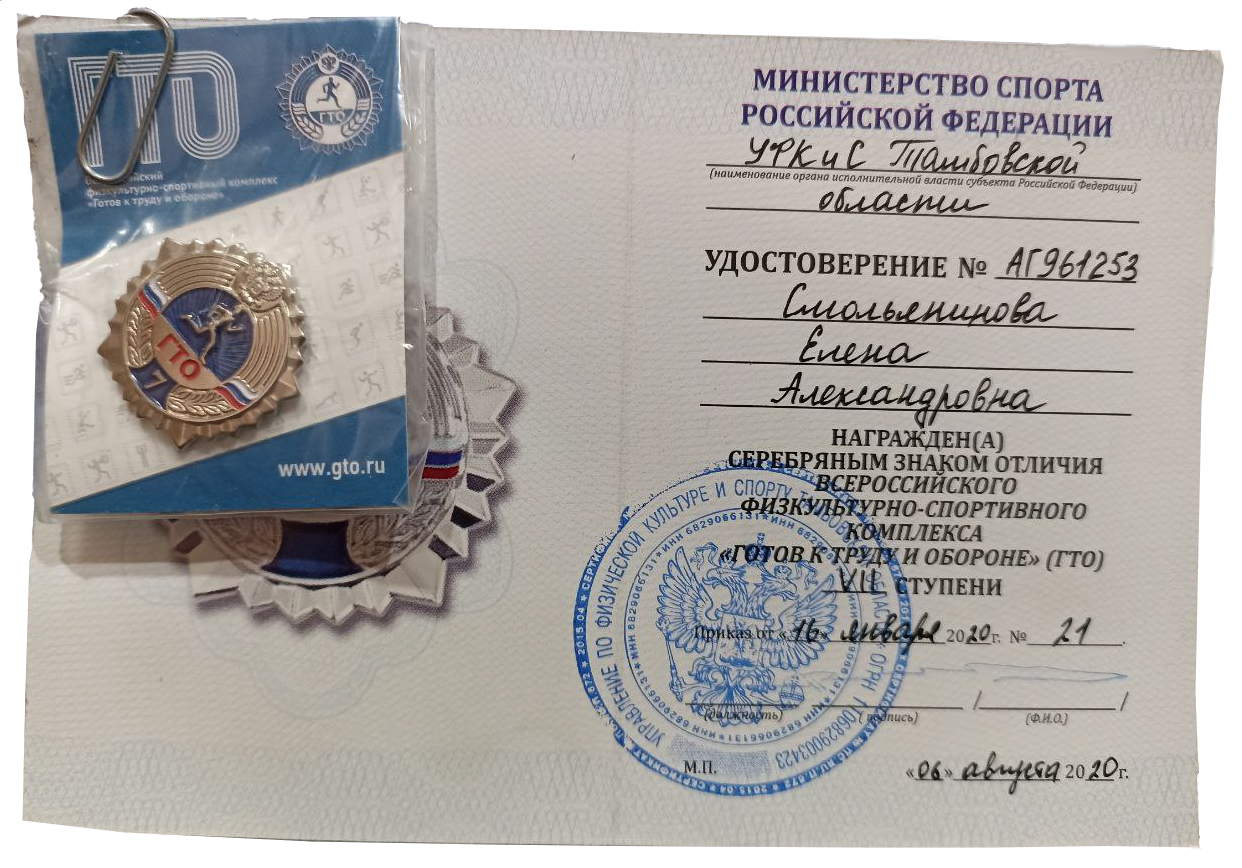 ГТО
ГТО
физкультурно-спортивный комплекс
«Готов к труду и обороне»
ГТО
7
www.gto.ru
МИНИСТЕРСТВО СПОРТА
РОССИЙСКОЙ ФЕДЕРАЦИИ
УФКиС Тамбовской
(наименование органа исполнительной власти субъекта Российской Федерации)
области
УДОСТОВЕРЕНИЕ № АГ961253
Смольянинова
Елена
Александровна
НАГРАЖДЕН(А)
СЕРЕБРЯНЫМ ЗНАКОМ ОТЛИЧИЯ
ВСЕРОССИЙСКОГО
ФИЗКУЛЬТУРНО-СПОРТИВНОГО
КОМПЛЕКСА
«ГОТОВ К ТРУДУ И ОБОРОНЕ» (ГТО)
VII СТУПЕНИ
Приказ от «16» января 2020г. № 21.
/ /
(должность) (подпись) (Ф.И.О.)
М.П.
«06» августа 2020г.
УПРАВЛЕНИЕ ПО ФИЗИЧЕСКОЙ КУЛЬТУРЕ И СПОРТУ ТАМБОВСКОЙ ОБЛАСТИ * ОГРН 1106829003423
ИНН 6829066131 * ИНН 6829066131 * ИНН 6829066131